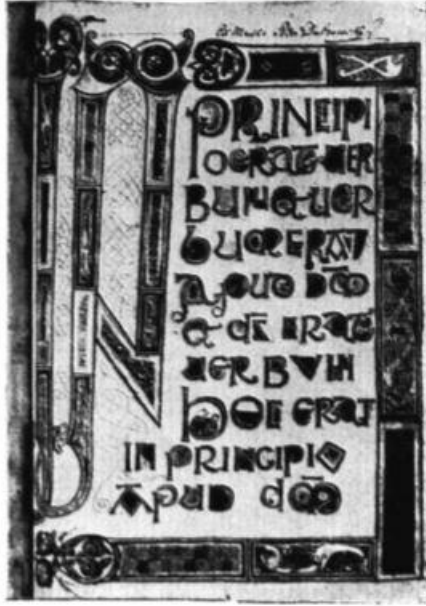 IN PRINCIPI
O ERAT UER
BUM & UER
BUM ERAT
APUD DM̄
& DS̄ ERAT
UERBVM
HOC ERAT
IN PRINCIPIO
APUD DM̄